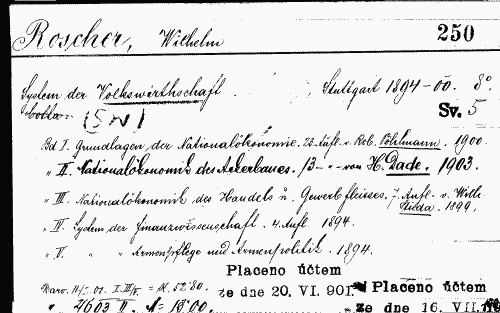 Roscher, Wilhelm 250
System der Volkswirthschaft. Stuttgart 1894-00. 8°
Cotta. Sv. 5
Bd I. Grundlagen der Nationalökonomie. 23. Aufl. v. Rob. Pöhlmann. 1900.
" II. Nationalökonomik des Ackerbaues. 13 - " - von H. Dade. 1903.
" III. Nationalökonomik des Handels u. Gewerbfleißes. 7. Aufl. v. Wilh. Stieda. 1899.
" IV. System der Finanzwissenschaft. 4. Aufl. 1894.
" V. " " Armenpflege und Armenpolitik. 1894.
Placeno účtem
ze dne 20. VI. 901
Placeno účtem
ze dne 16. VII.
4603 II.